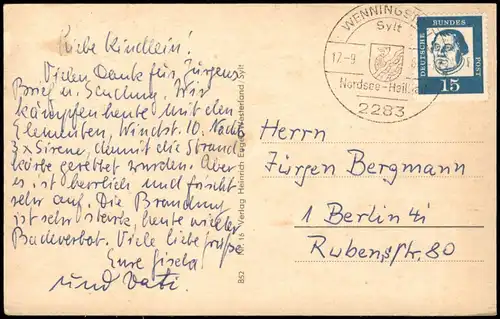 Liebe Kindlein!
Vielen Dank für Jürgens
Brief u. Sendung. Wir
kämpfen heute mit den
Elementen, Windst. 10. Nachts
3 x Sirene, damit die Strand
körbe gerettet wurden. Aber
es ist herrlich und frischt
sehr auf. Die Brandung
ist sehr stark, heute wieder
Badeverbot. Viele liebe Grüße
Eure Gisela
und Vati.
B52 Nr. 16 Verlag Heinrich Westerland/Sylt
WENNINGST
Sylt
17-9
Nordsee-Heil
2283
DEUTSCHE BUNDES POST
15
Herrn
Jürgen Bergmann
1 Berlin 41
Rubensstr. 80